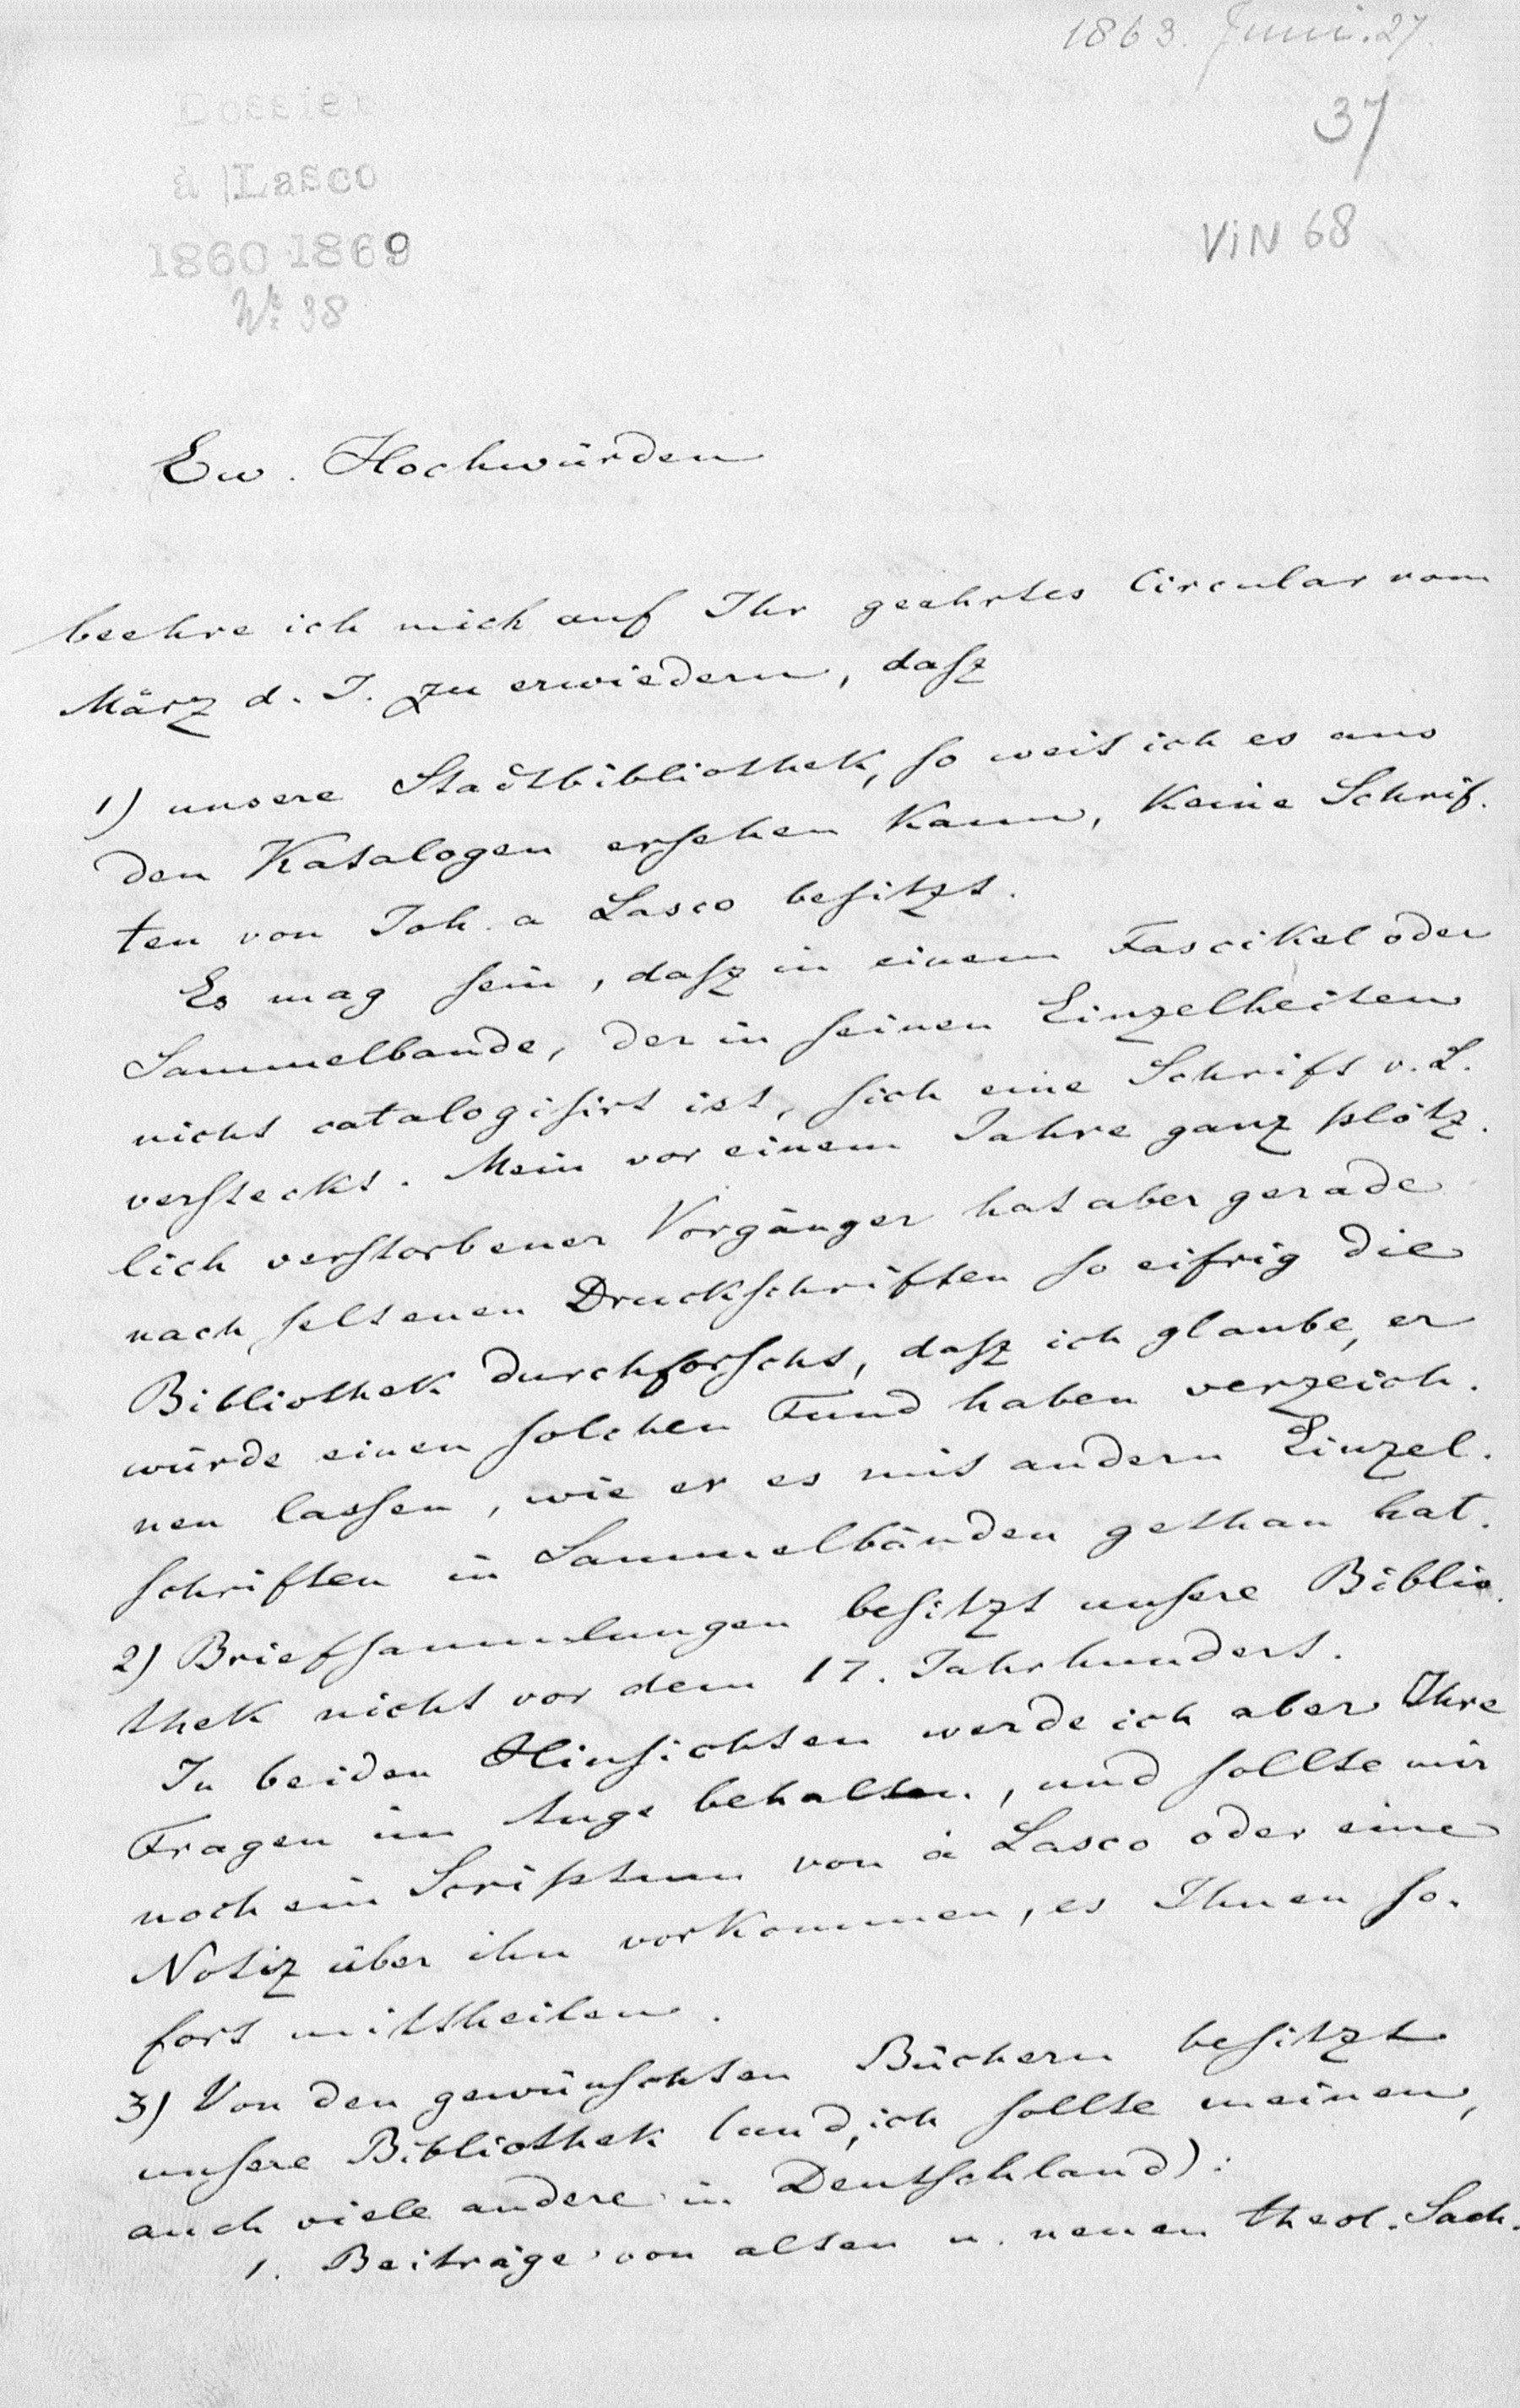 1863. Juni. 27.
37
Dossier
à Lasco
1860 1869
VIN 68
No 38
Ew. Hochwürden
beehre ich mich auf Ihr geehrtes Circular vom
März d. J. zu erwiedern, daſz
1) unsere Stadtbibliothek, ſo weit ich es aus
den Katalogen erſehen kann, keine Schrif-
ten von Joh. a Lasco beſitzt.
Es mag ſein, daſz in einem Fascikel oder
Sammelbande, der in ſeinen Einzelheiten
nicht catalogiſirt ist, ſich eine Schrift v. L.
verſteckt. Mein vor einem Jahre ganz plötz-
lich verſtorbener Vorgänger hat aber gerade
nach ſeltenen Druckſchriften ſo eifrig die
Bibliothek durchforſcht, daſz ich glaube, er
würde einen ſolchen Fund haben verzeich-
nen laſſen, wie er es mit andern Einzel-
ſchriften in Sammelbänden gethan hat.
2) Briefſammlungen beſitzt unſere Biblio-
thek nicht vor dem 17. Jahrhundert.
In beiden Hinſichten werde ich aber Ihre
Fragen im Auge behalten, und ſollte mir
noch ein Scriptum von à Lasco oder eine
Notiz über ihn vorkommen, es Ihnen ſo-
fort mittheilen.
3) Von den gewünſchten Büchern beſitzt
unſere Bibliothek (und, ich ſollte meinen,
auch viele andere in Deutſchland):
1. Beiträge von alten u. neuen theol. Sach-